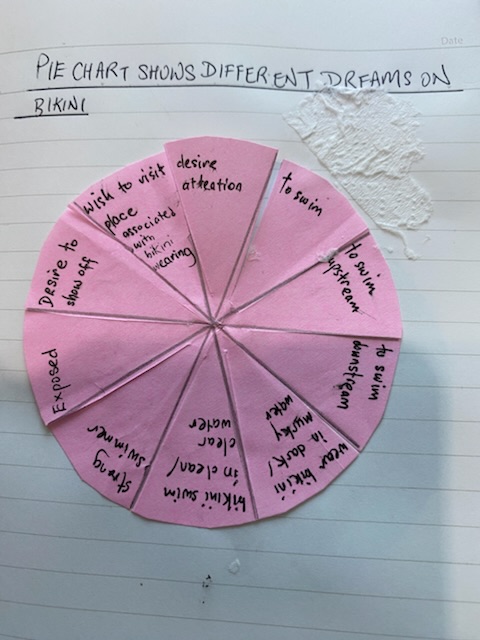 Date
PIE CHART SHOWS DIFFERENT DREAMS ON
BIKINI
desire
attention
to swim
to swim
upstream
to swim
downstream
wear bikini
in dark/
murky
water
bikini swim
in clean/
clear
water
strong
swimmer
Exposed
Desire to
show off
wish to visit
place
associated
with
bikini
wearing